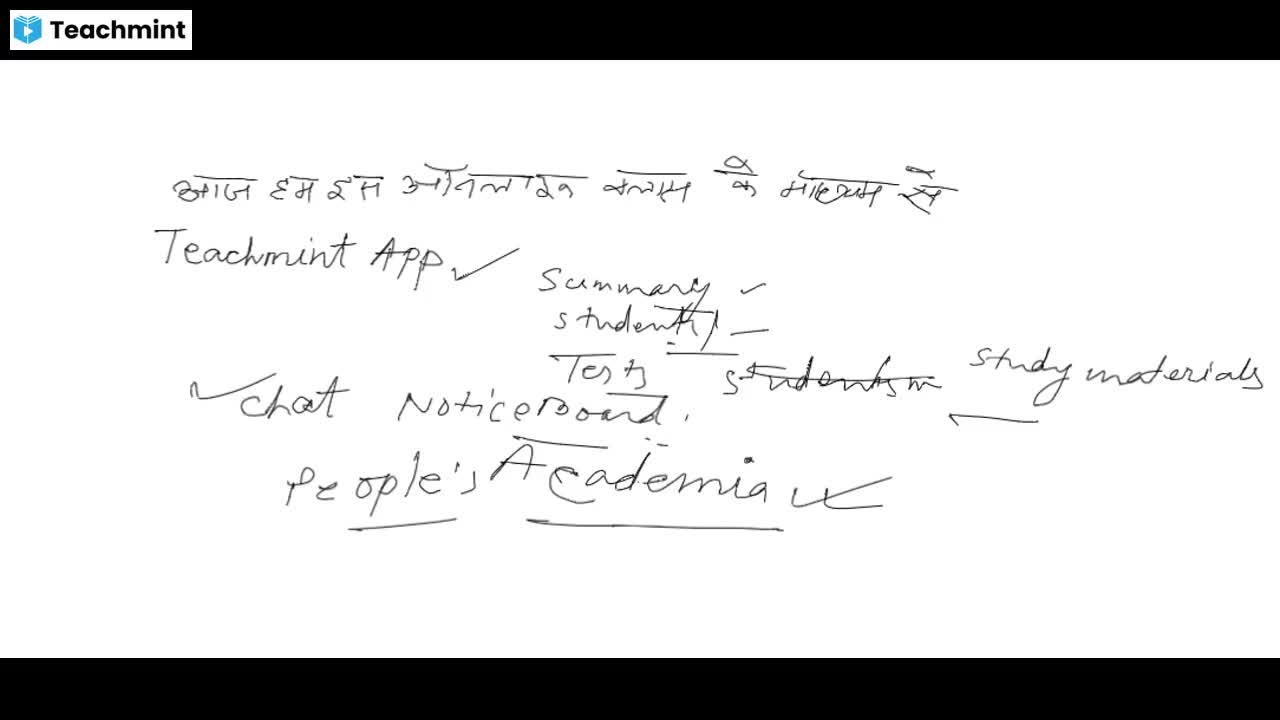 Teachmint
आज हम इस ऑनलाइन क्लास के माध्यम से
Teachmint App
Summary
Students
Tests
Study materials
Chat Notice Board
People's Academia